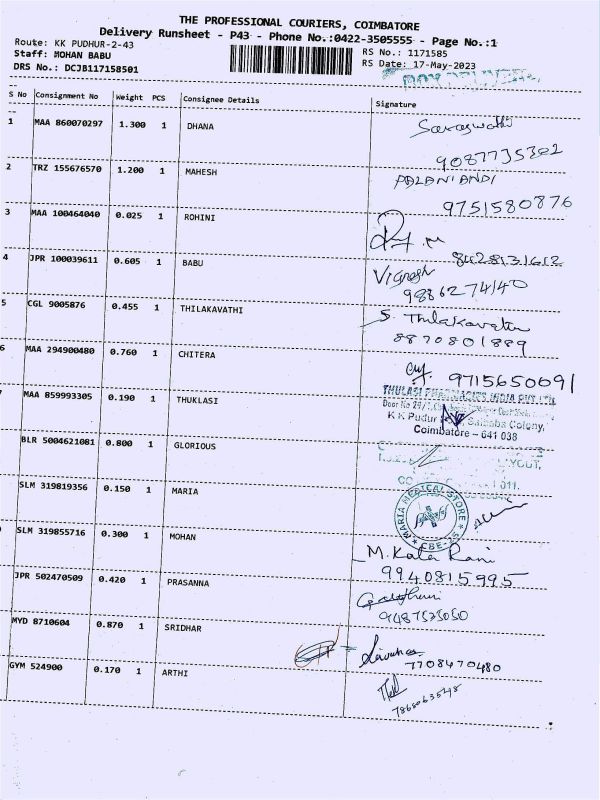 THE PROFESSIONAL COURIERS, COIMBATORE
Delivery Runsheet - P43 - Phone No.:0422-3505555 - Page No.:1
Route: KK PUDHUR-2-43
RS No.: 1171585
Staff: MOHAN BABU
RS Date: 17-May-2023
DRS No.: DCJB117158501
S No Consignment No Weight PCS Consignee Details Signature
1 MAA 860070297 1.300 1 DHANA Saraswathi
9087735302
2 TRZ 155676570 1.200 1 MAHESH PALANIANDI
9751580876
3 MAA 100464040 0.025 1 ROHINI
8428131612
4 JPR 100039611 0.605 1 BABU Vignesh
9886274140
5 CGL 9005876 0.455 1 THILAKAVATHI S. Thilakavathi
8870801889
6 MAA 294900480 0.760 1 CHITERA
9715650091
MAA 859993305 0.190 1 THUKLASI THULASI PHARMACIES INDIA PVT. LTD.
K K Pudur Saibaba Colony,
Coimbatore - 641 038
BLR 5004621081 0.800 1 GLORIOUS
LAYOUT,
SLM 319819356 0.150 1 MARIA MARIA MEDICAL STORE
SLM 319855716 0.300 1 MOHAN M. Kala Rani
9940815995
JPR 502470509 0.420 1 PRASANNA
MYD 8710604 0.870 1 SRIDHAR
7708470480
GYM 524900 0.170 1 ARTHI